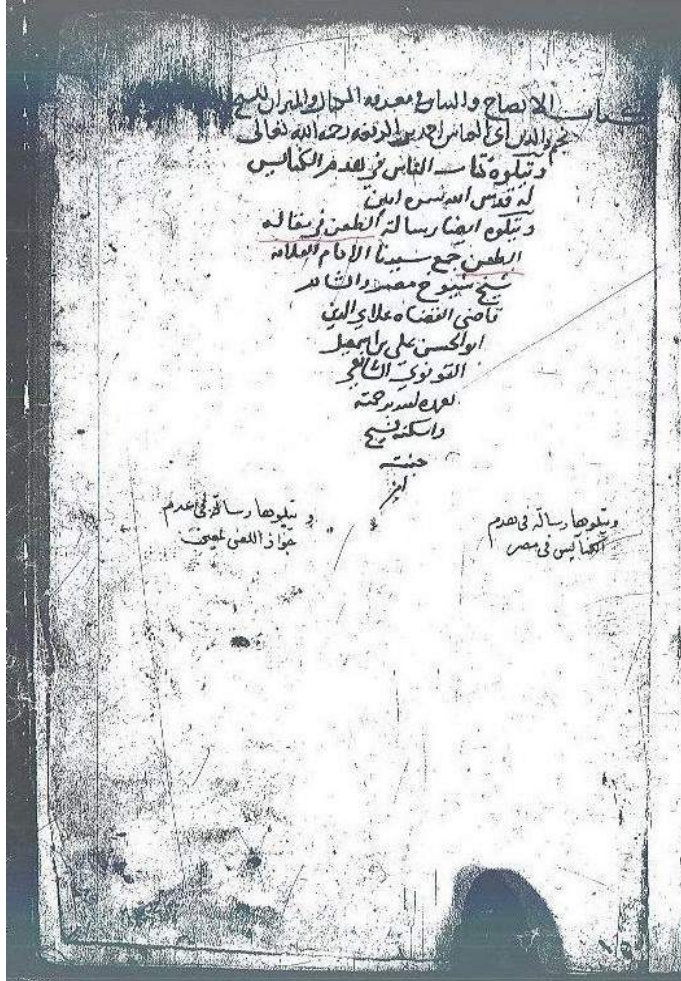 كتاب الايضاح والبيان في معرفة المكيال والميزان للشيخ
نجم الدين ابي العباس احمد بن الرفعه رحمه الله تعالى
ويتلوه كتاب النفائس في هدم الكنائس
له قدس الله سره امين
ويتلوه ايضا رسالة الطعن في مقالة
الطعن جمع سيدنا الامام العلامة
شيخ شيوخ مصر والشام
قاضي القضاه علاء الدين
ابو الحسن علي بن اسمعيل
القونوي الشافعي
تغمده الله برحمته
واسكنه فسيح
جنته
امين
ويتلوها رسالة في هدم
الكنائس في مصر
ويتلوها رسالة في عدم
جواز اللعن لمعين